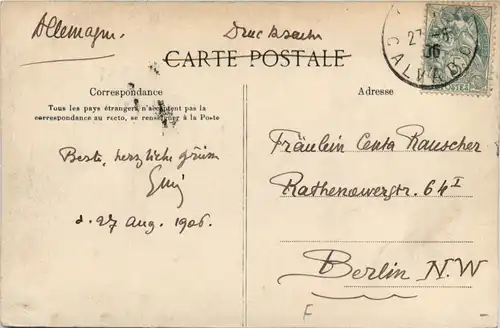 Allemagne.
Drucksache
CARTE POSTALE
27-8
06
CALVADOS
POSTES
Correspondance
Tous les pays étrangers n'acceptent pas la
correspondance au recto, se renseigner à la Poste
Beste, herzliche Grüsse
d. 27 Aug. 1906.
Adresse
Fräulein Centa Rauscher
Rathenowerstr. 64 I
Berlin N.W
F